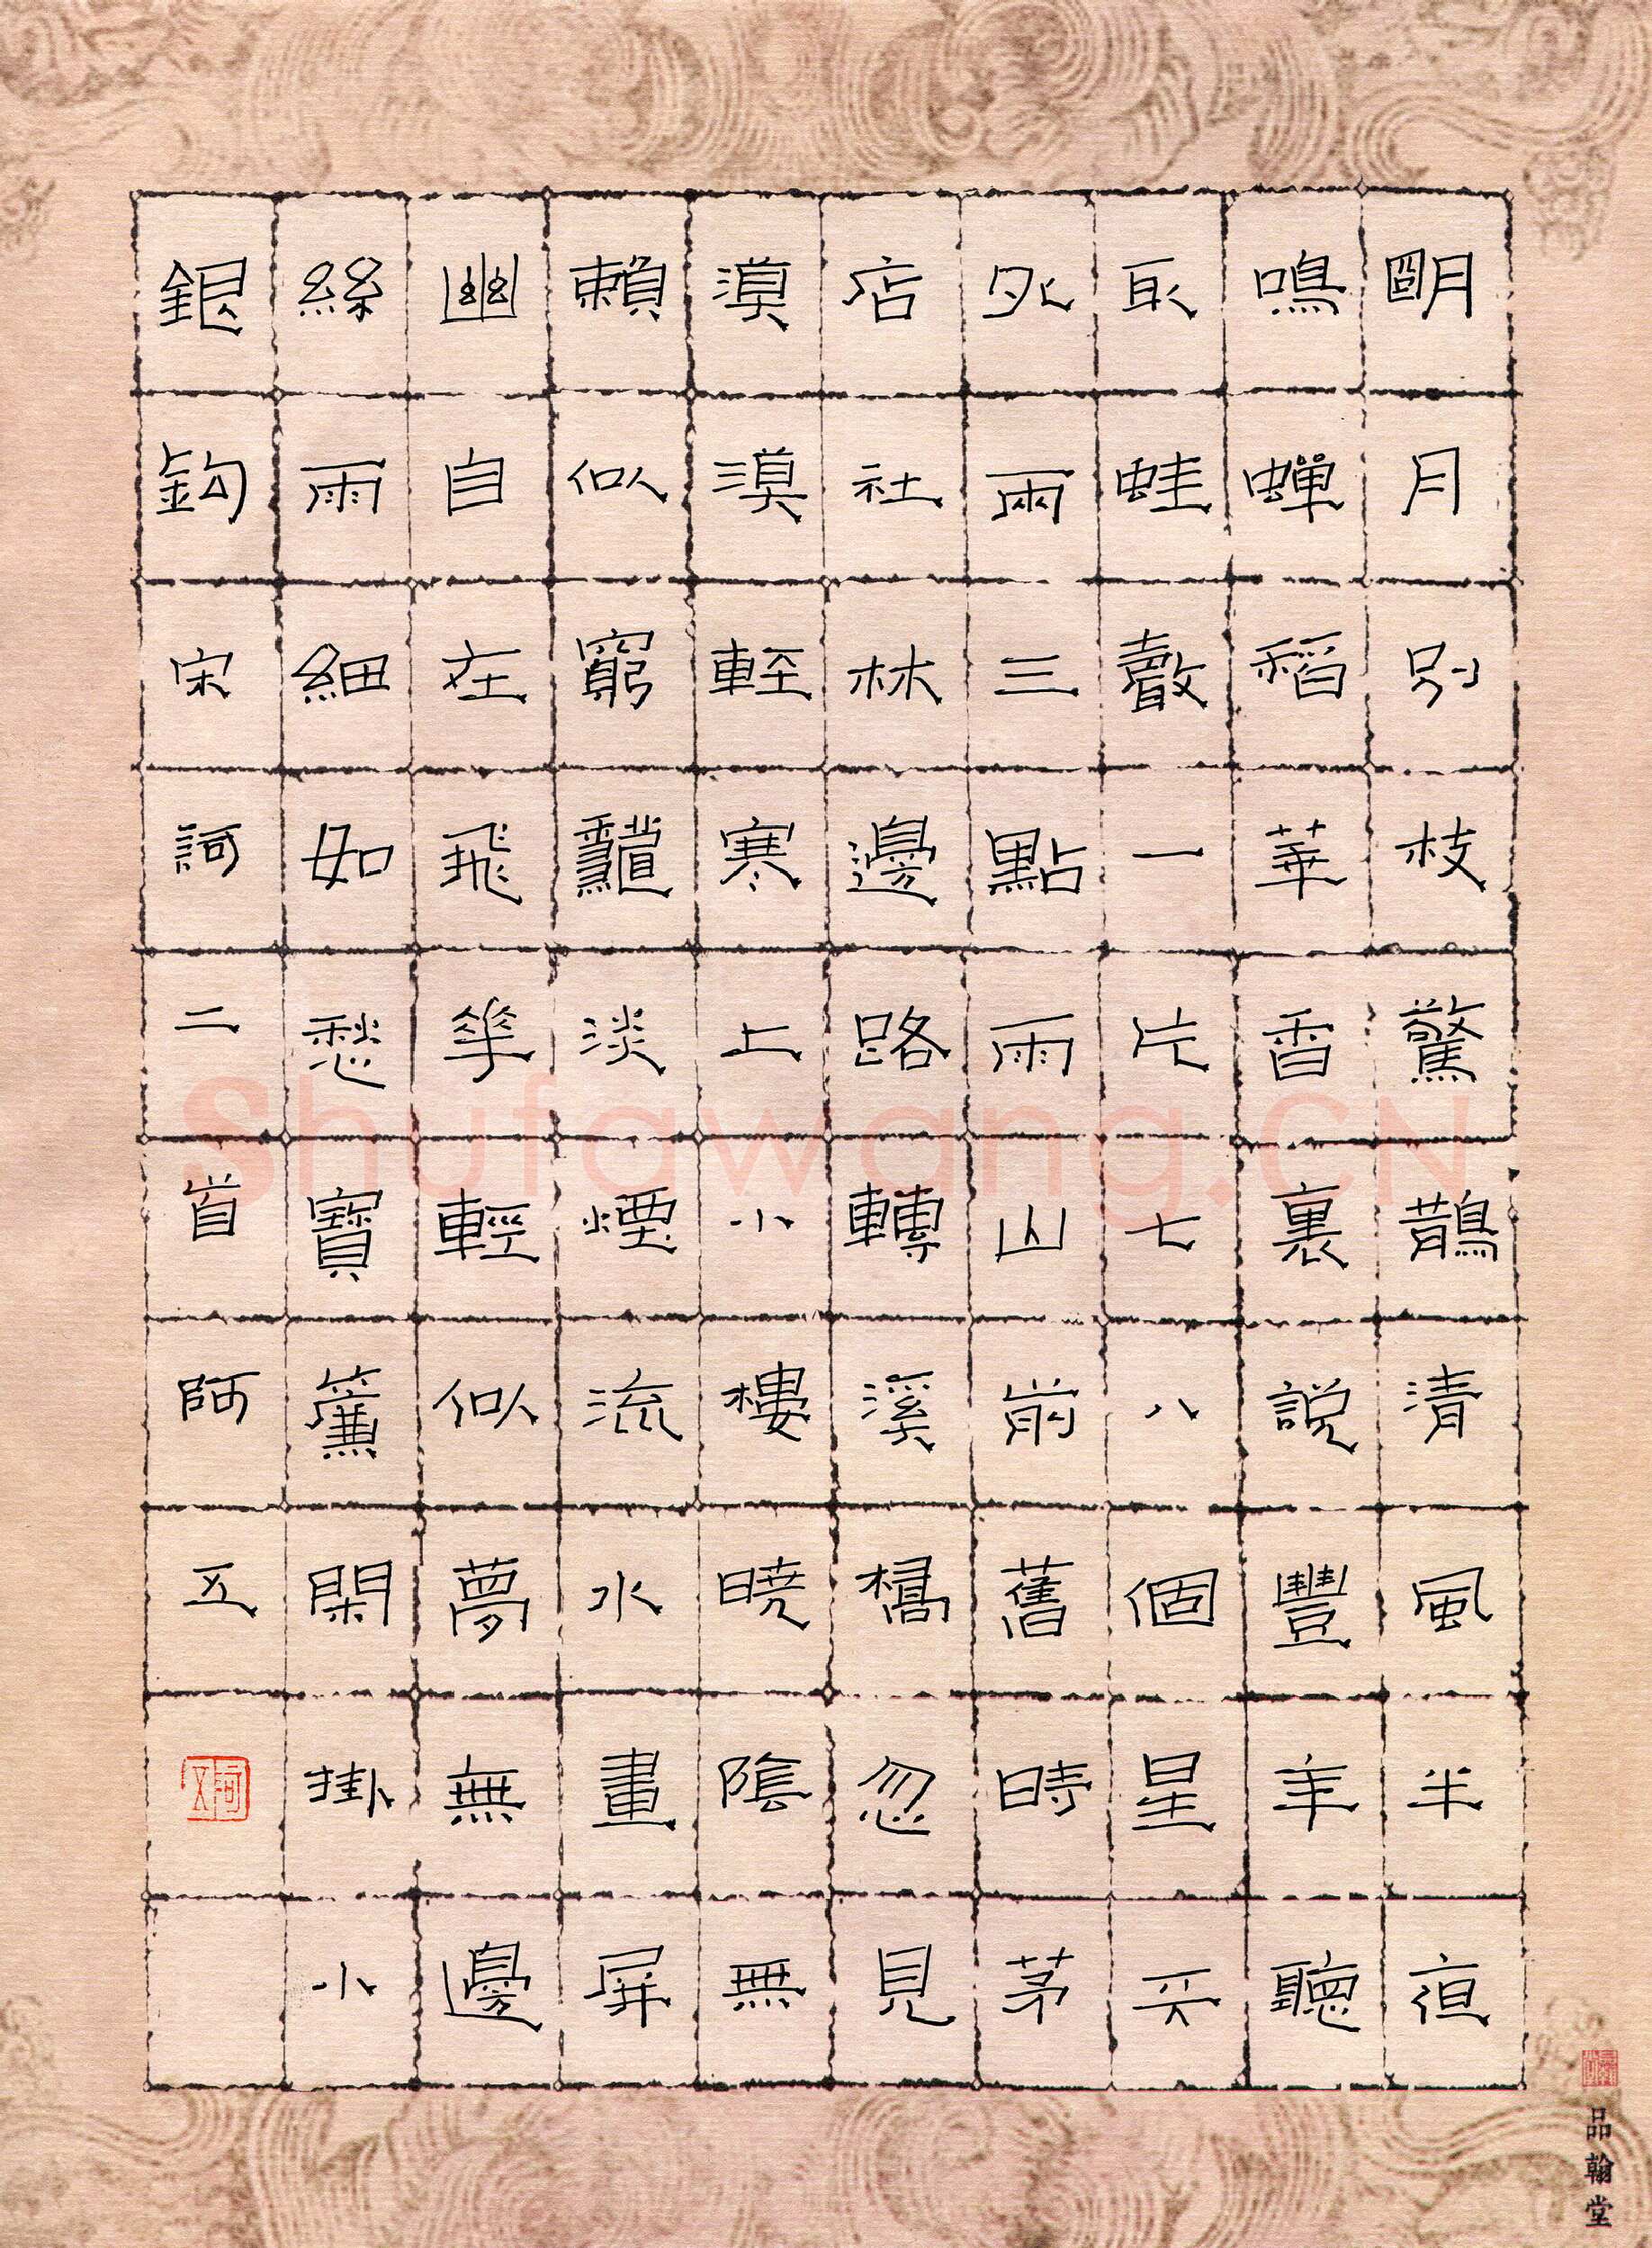 明月別枝驚鵲清風半夜
鳴蟬稻華香裏説豐年聽
取蛙聲一片七八個星天
外兩三點雨山前舊時茅
店社林邊路轉溪橋忽見
漠漠輕寒上小樓曉陰無
賴似窮龝淡煙流水畫屏
幽自在飛華輕似夢無邊
絲雨細如愁寶簾閑掛小
銀鈎宋詞二首阿五
品翰堂
Shufawang.CN